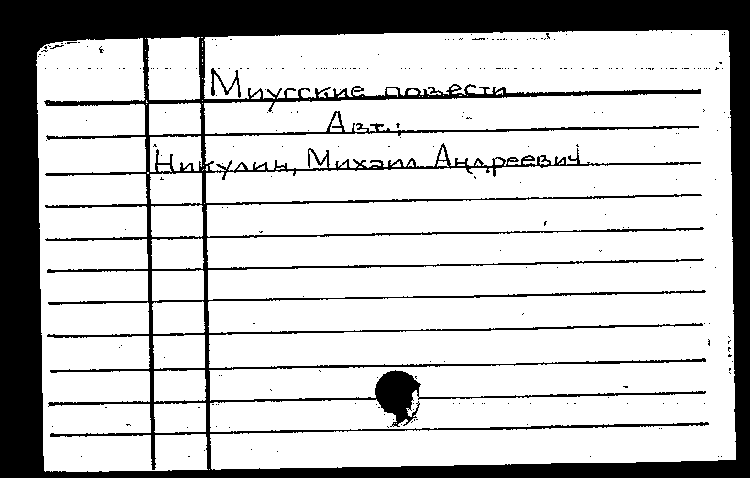 Миусские повести
Авт.:
Никулин, Михаил Андреевич